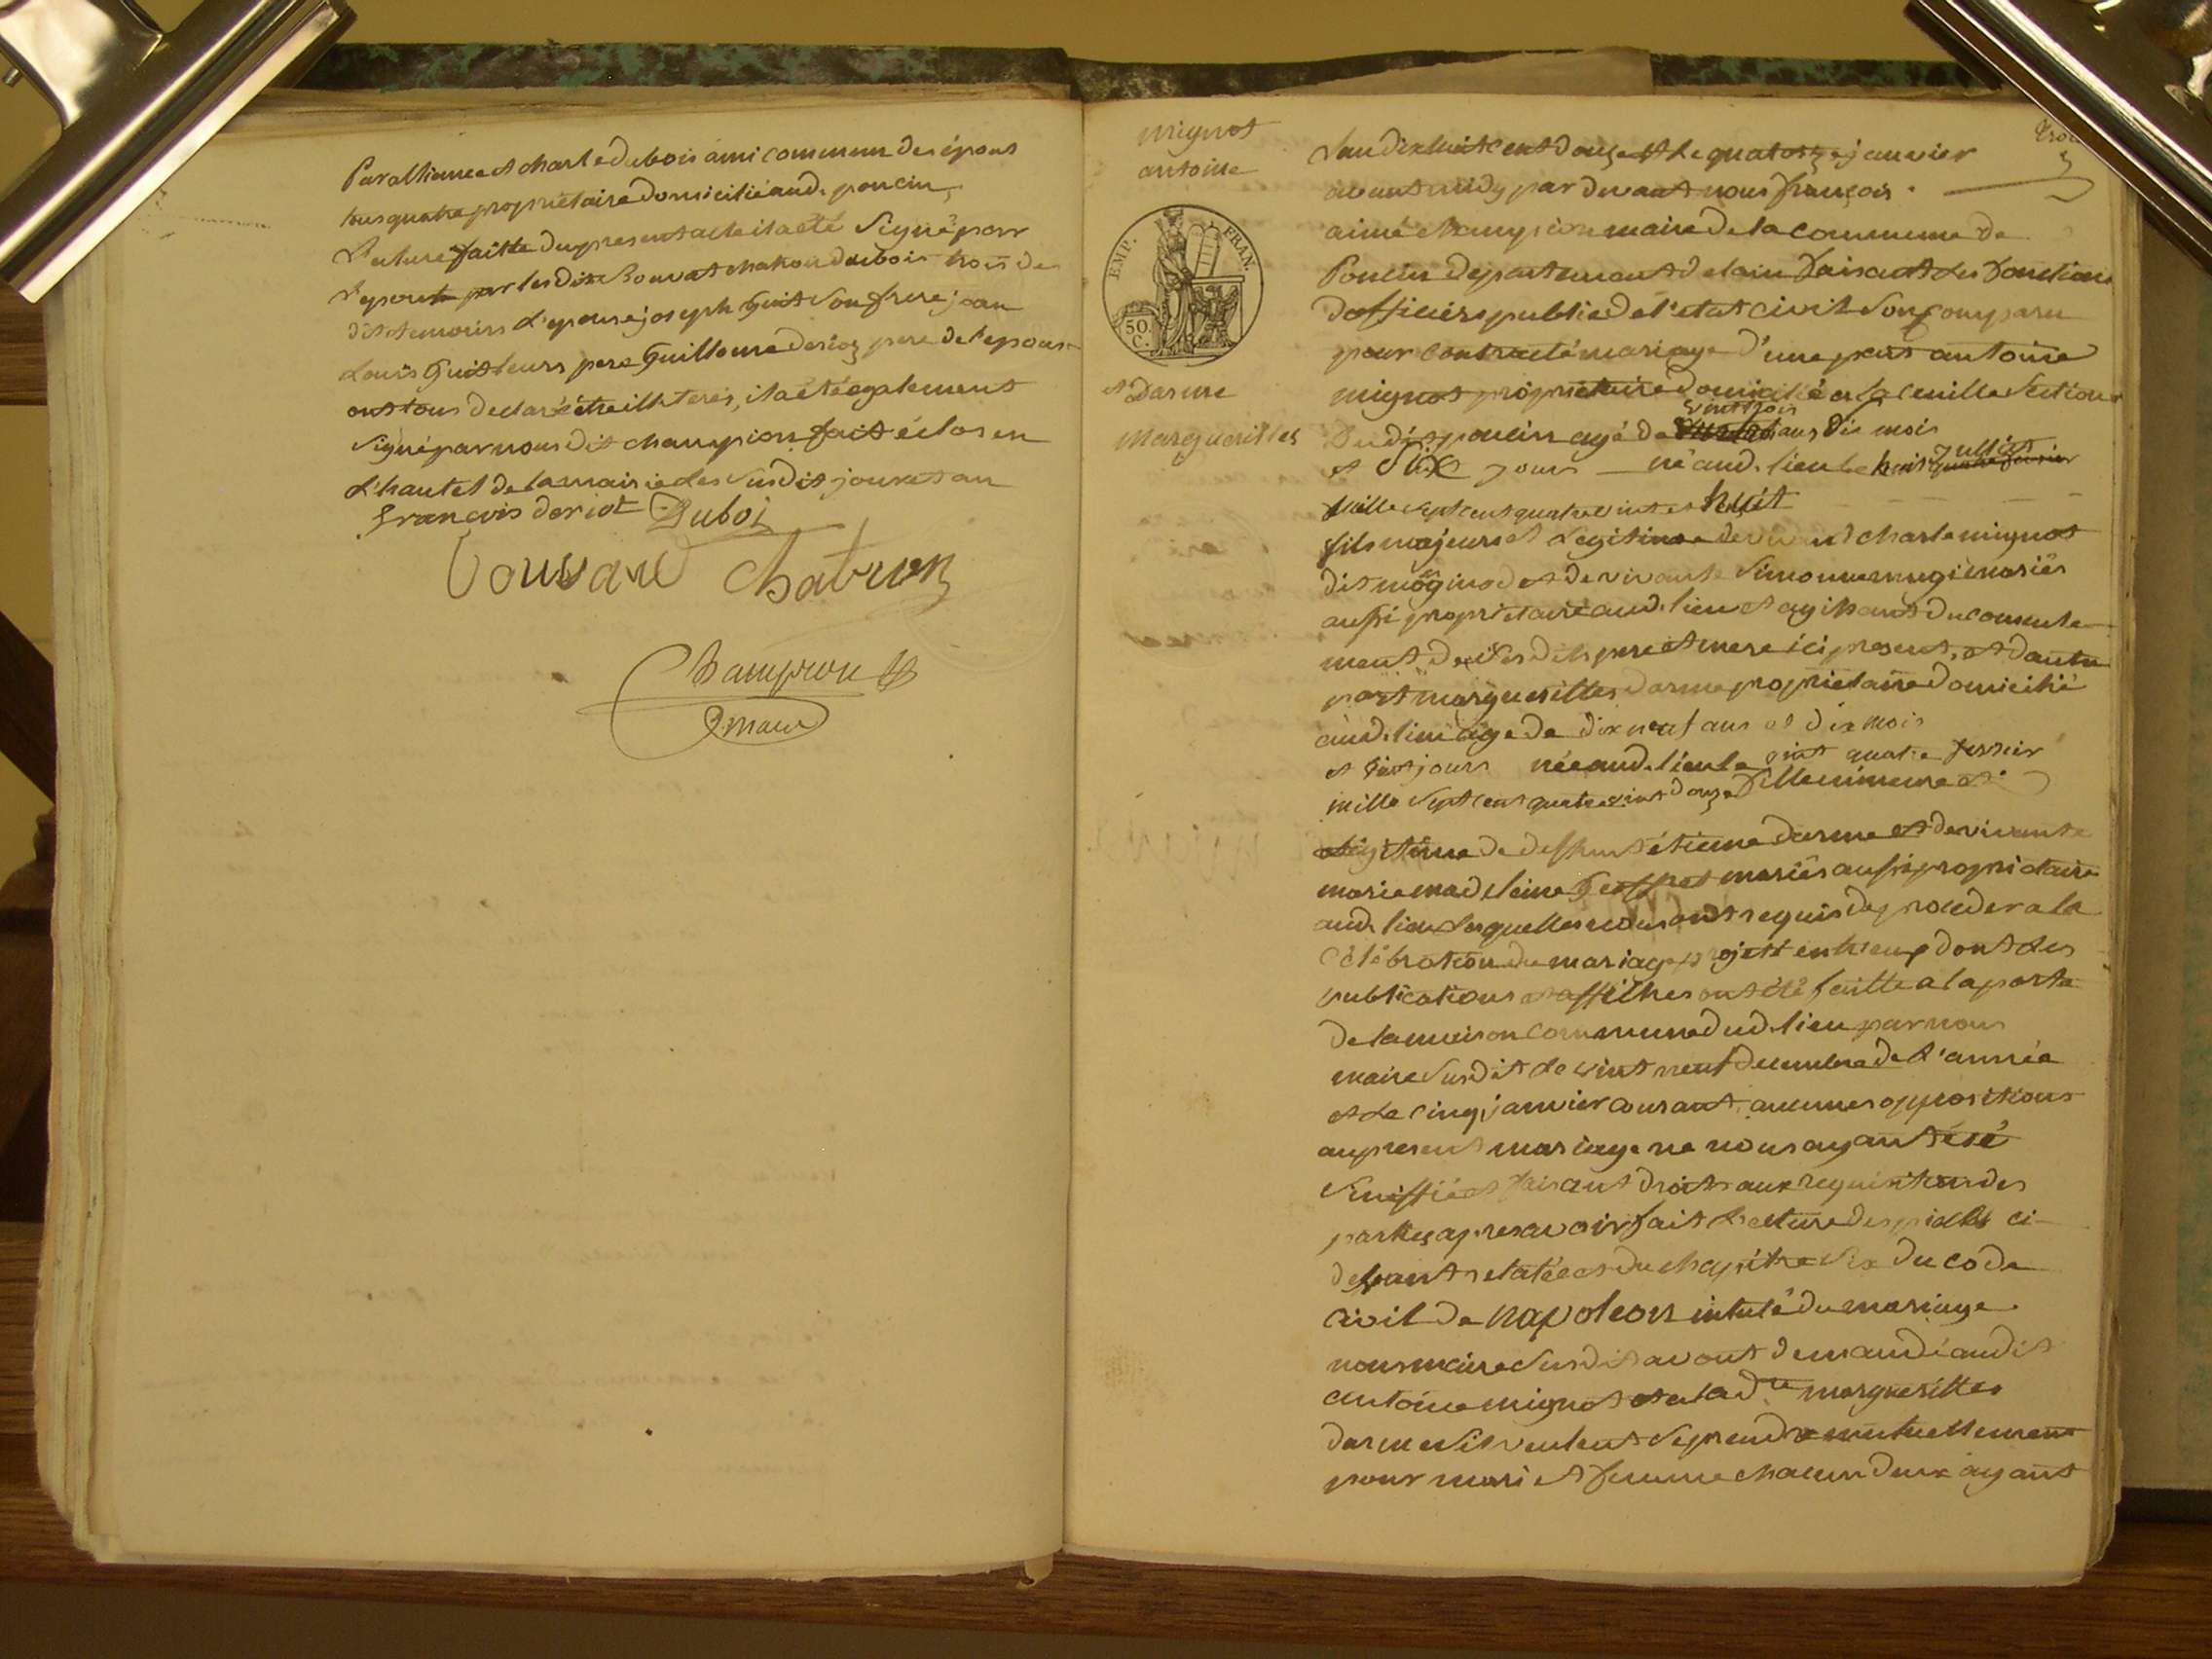 Par alliance et charle dubois ami commun des épous
tous quatre propriétaire domicilié aud. poncin,
Lecture faitte du present acte il a eté Signé par
L'epouse par les dits Bouvat chatron dubois trois des
dits temoins L'epouse joseph Guit Son frere jean
Louis Guit leurs pere Guillaume dorioz pere de l'epous
ont tous declaré être illiteres, il a été egalement
Signé par nous dit champion fait é clos en
L'hautel de la mairie les Susdit jour et an
françois doriot Dubois
Bouvard Chatron
Champion
maire
mignot
antoine
EMP. FRAN.
50.
C.
et Darme
Marguerittes
trois
3
L'an dix huit cent douze et le quatorze janvier
avant midy par devant nous françois
aimé Champion maire de la commune de
Poncin departement de lain faisant les fonctions
dofficiers public de l'etat civil Son comparu
pour contracté mariage d'une part antoine
mignot propriétaire domicilié en la Section
du dit poncin agé de vint trois ans dix mois
et Six jours né aud. lieu le huit jullict
Mille Sept cent quatre vint et huit
fils majeurs et Legitime de vivant charle mignot
dit et de vivante Simonne mugi mariés
aussi propriétaire aud. lieu et agissant du consente
ment de Ses dits pere et mere ici present, et d'autre
part marguerittes darme propriétaire domicilié
aud. lieu agé de dix neuf ans et dix mois
et vint jours née aud. lieu le vint quatre fevrier
mille Sept cent quatre vint douze fille mineure et
Légitime de deffunt étienne darme et de vivante
marie madeleine mariés aussi propriotaire
aud. lieu Lesquelles nous ont requis de proceder a la
Célébration du mariage projeté entreux dont les
publications et affiches ont été faitte a la porte
de la maison commune dud. lieu par nous
maire Susdit le vint neuf decembre de l'année
et le cinq janvier courant, aucunes oppositions
au present mariage ne nous ayant été
Sinifiée et faisant droit aux requisition des
parties apres avoir fait Lecture des pieces ci-
devant relatées et du chapitre Six du code
civil de Napoleon intulé du mariage
nous maire Susdit avont demandé audit
antoine mignot et a lad.te marguerittes
darme S'il veulent Se prendre mutuellement
pour mari et femme chacun deux ayant